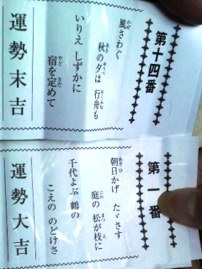 第十四番
風さわぐ
秋の夕は 行舟も
いりえ しずかに
宿を定めて
運勢末吉
第一番
朝日かげ たゞさす
庭の 松が枝に
千代よぶ 鶴の
こえの のどけさ
運勢大吉